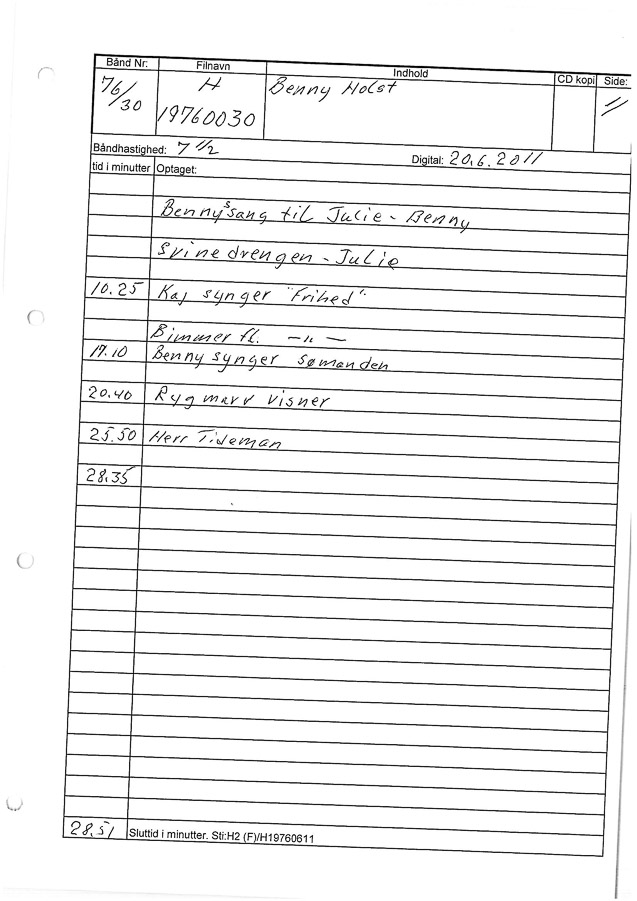 Bånd Nr: Filnavn Indhold CD kopi Side:
76/30 H 19760030 Benny Holst 11
Båndhastighed: 7 1/2 Digital: 20.6.2011
tid i minutter Optaget:
Benny's sang til Julie - Benny
Svinedrengen - Julie
10.25 Kaj synger "Frihed".
Bimmer fl. -"-
17.10 Benny synger sømanden
20.40 Rygmarv visner
25.50 Herr Tideman
28.35
28.51 Sluttid i minutter. Sti:H2 (F)/H19760611